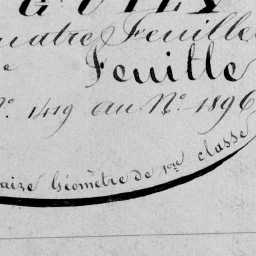 uatre Feuille
e Feuille
N.º 1419 au N.º 1896
aize Géomètre de 1ère classe